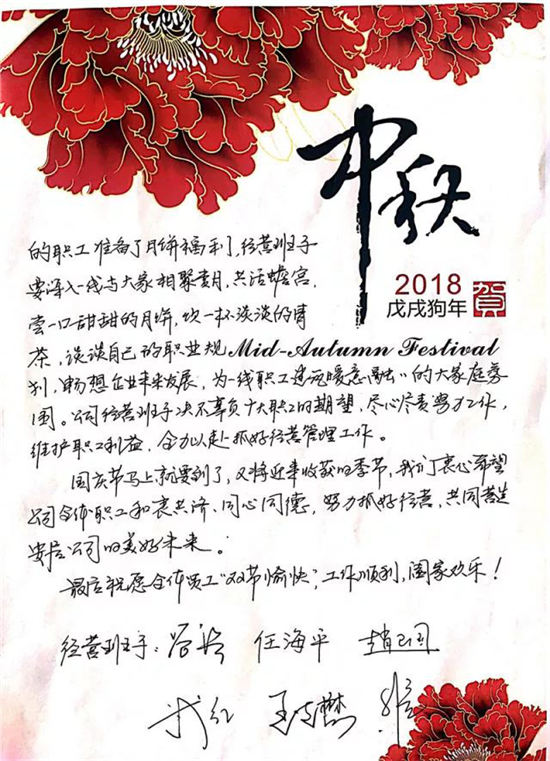 中秋
2018
戊戌狗年
賀
的职工准备了月饼福利，经营班子
要深入一线与大家相聚赏月，共话蟾宫，
尝一口甜甜的月饼，饮一杯淡淡的清
茶，谈谈自己的职业规
Mid-Autumn Festival
划，畅想企业未来发展，为一线职工造就暖意融融的大家庭氛
围。公司经营班子决不辜负广大职工的期望，尽心尽责努力工作，
维护职工利益，全力以赴抓好经营管理工作。
国庆节马上就要到了，又将迎来收获的季节，我们衷心希望
公司全体职工和衷共济、同心同德，努力抓好经营，共同营造
安居公司的美好未来。
最后祝愿全体员工"双节愉快"，工作顺利，阖家欢乐！
经营班子：
任海平